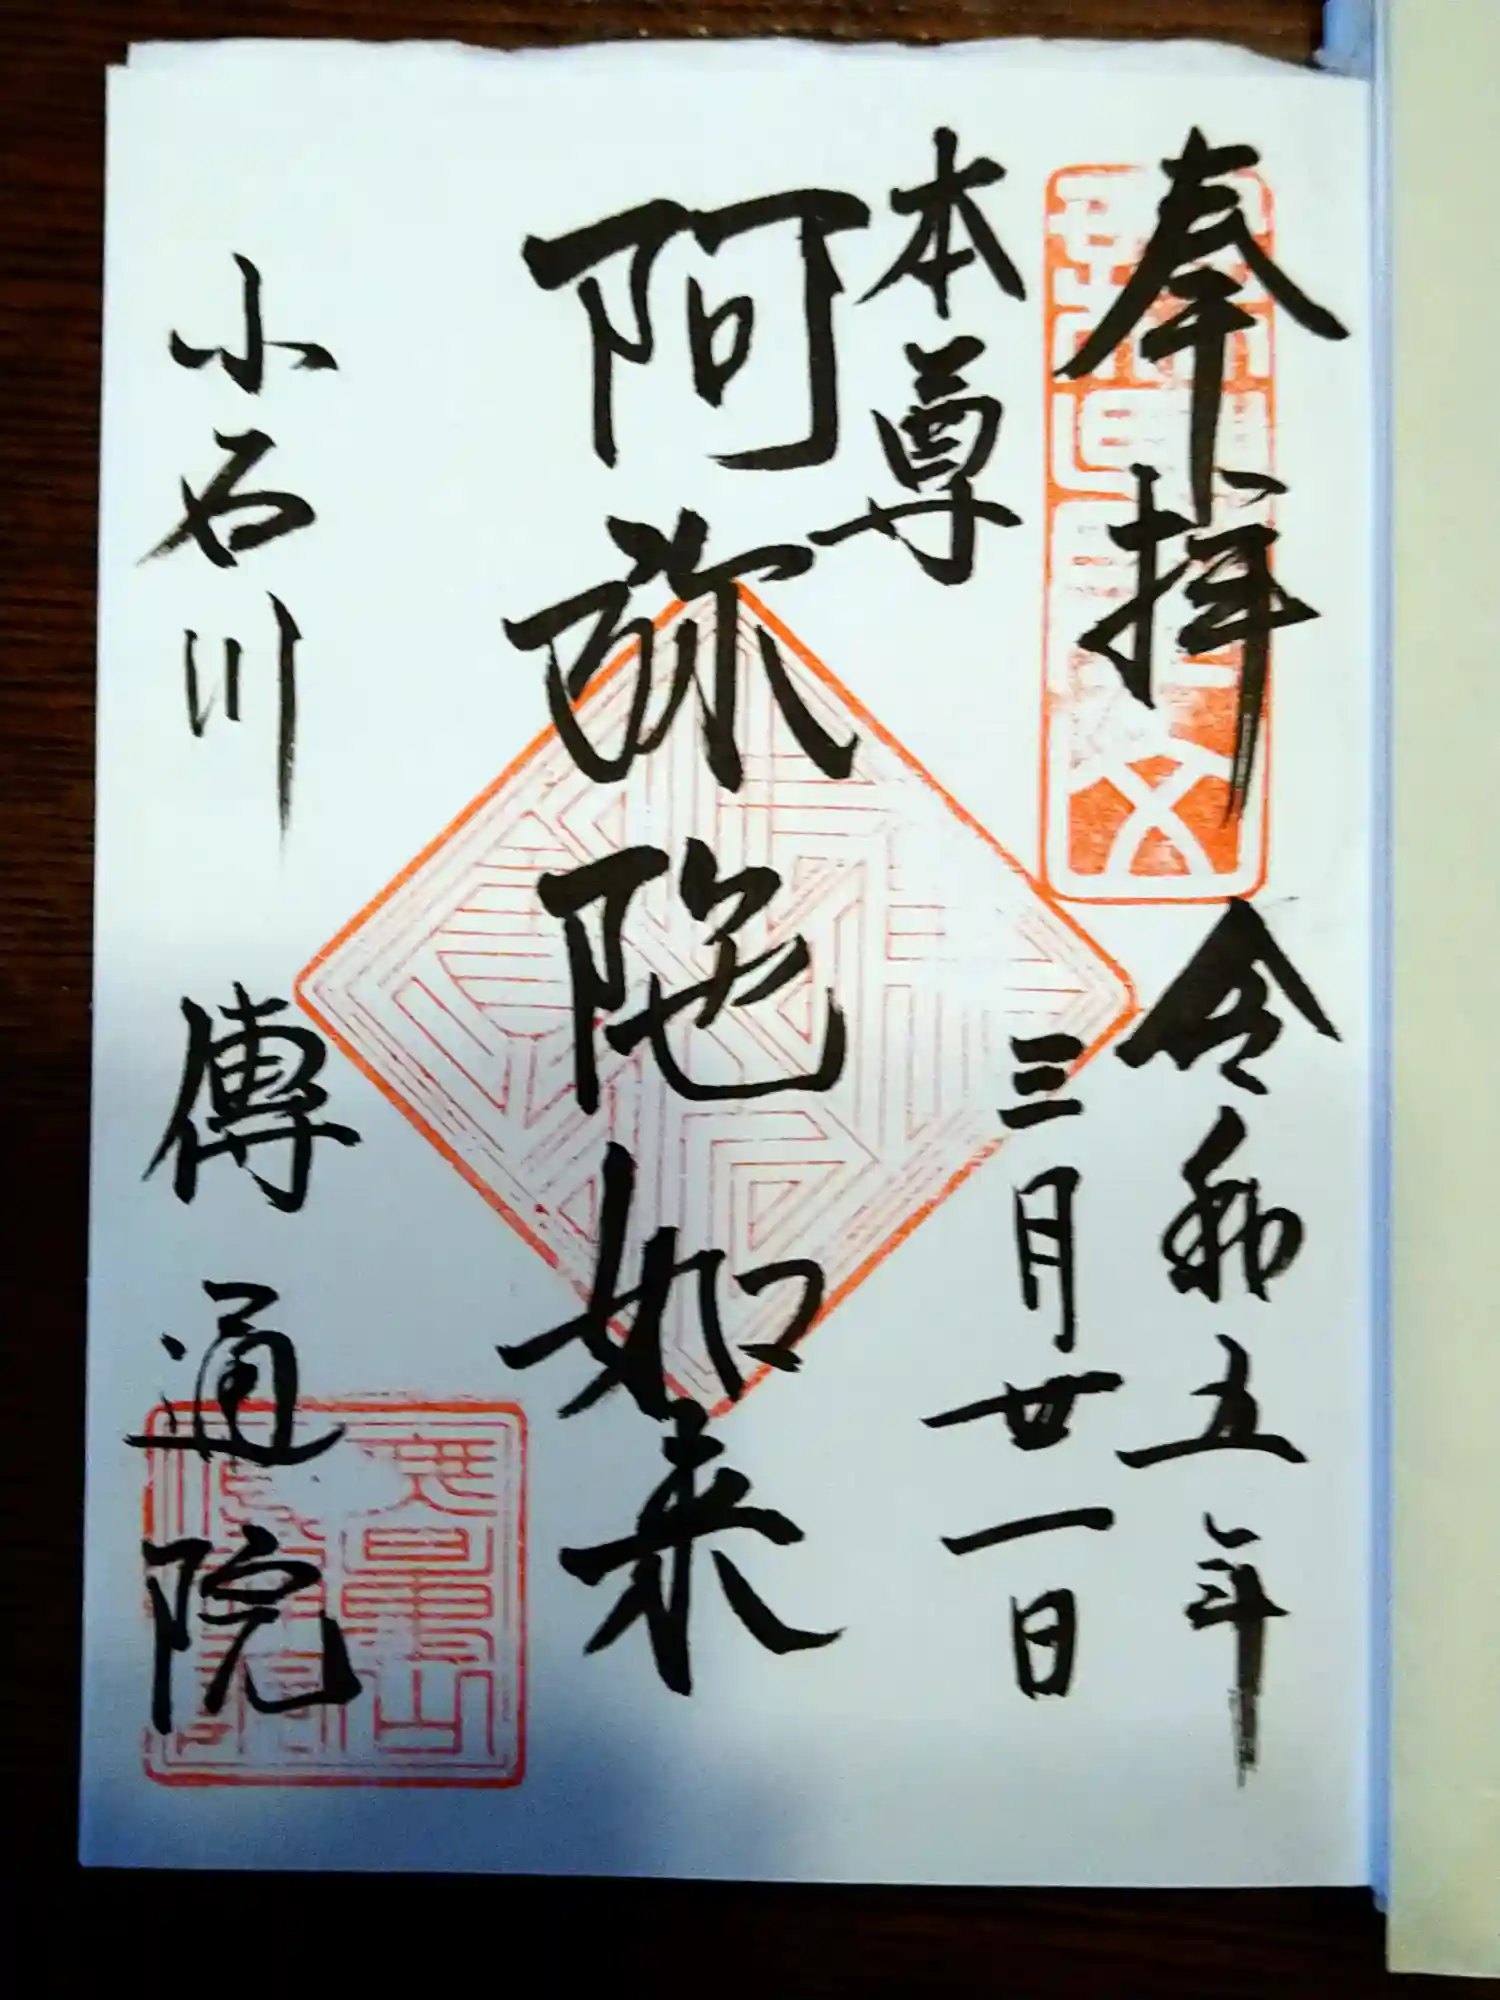 奉拝
令和五年
三月廿一日
本尊
阿弥陀如来
小石川
傳通院
無量山